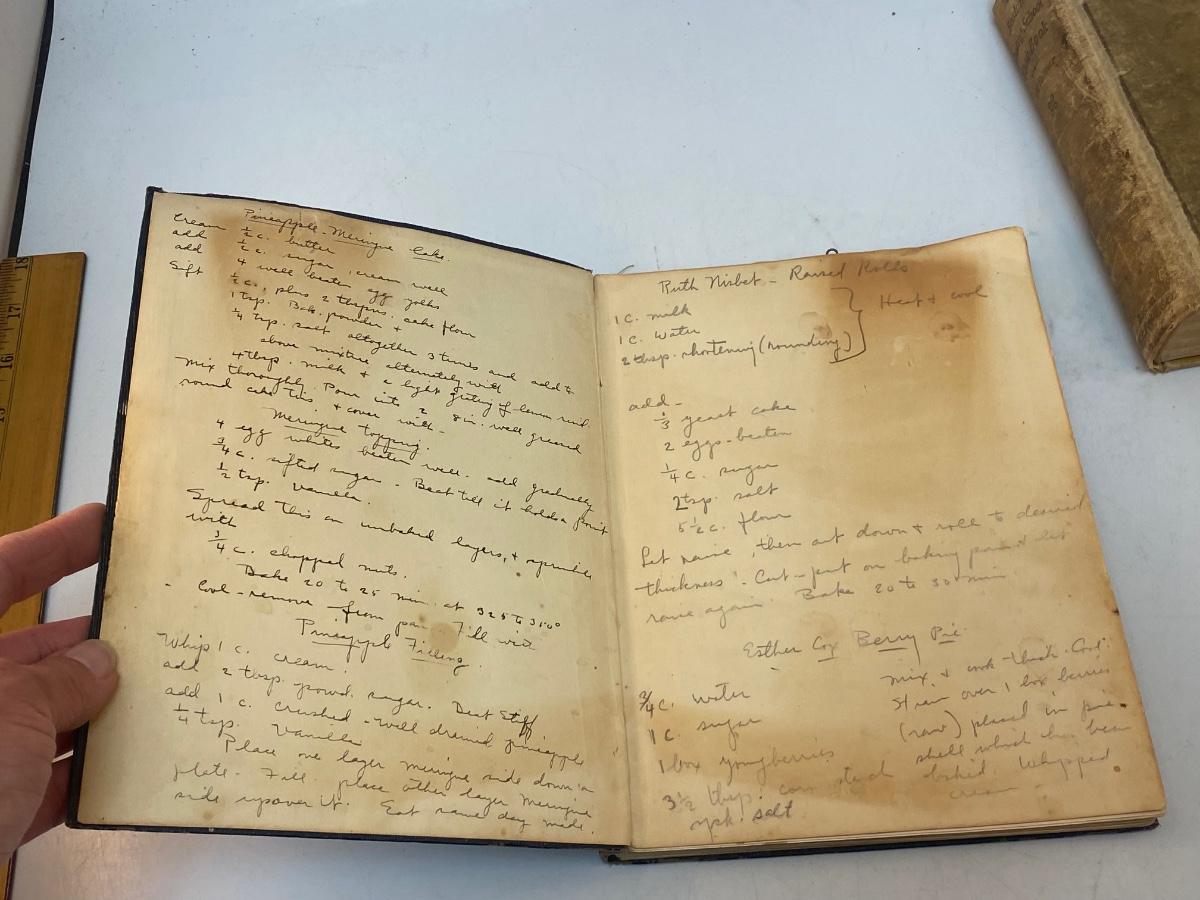 Pineapple-Meringue Cake.
Cream ½ c. butter
add ½ c. sugar, cream well
add 4 well beaten egg yolks
Sift ½ c., plus 2 tbspns. cake flour
1 tsp. Bak. powder +
¼ tsp. salt altogether 3 times and add to
above mixture alternately with
4 tbsp. milk + a light grating of lemon rind.
Mix thoroughly. Pour into 2 8 in. well greased
round cake tins + cover with -
Meringue topping.
4 egg whites beaten well. add gradually
¾ c. sifted sugar - Beat till it holds a point
½ tsp. vanilla.
Spread this on unbaked layers, + sprinkle
with
¾ c. chopped nuts.
Bake 20 to 25 min. at 325 to 350°
Cool - remove from pan. Fill with
Pineapple Filling.
Whip 1 c. cream
add 2 tbsp. powd. sugar. Beat stiff
add 1 c. crushed - well drained pineapple
¼ tsp. Vanilla
Place one layer meringue side down on
plate - Fill. place other layer meringue
side up over it. Eat same day made.
Ruth Nisbet - Raised Rolls
1 c. milk
1 c. water
2 tbsp. shortening (rounding)
Heat + cool
add -
⅓ yeast cake
2 eggs-beaten
¼ c. sugar
2 tsp. salt
5½ c. flour
Let raise, then cut down + roll to desired
thickness. Cut - put on baking pan + let
raise again. Bake 20 to 30 min
Esther Cox Berry Pie.
¾ c. water
1 c. sugar
1 box youngberries
3½ tbsp. corn starch
spk. salt
Mix + cook - thick. Cool.
Strew over 1 box berries
(raw) placed in pie
shell which has been
baked. Whipped
cream
School
18
17
16